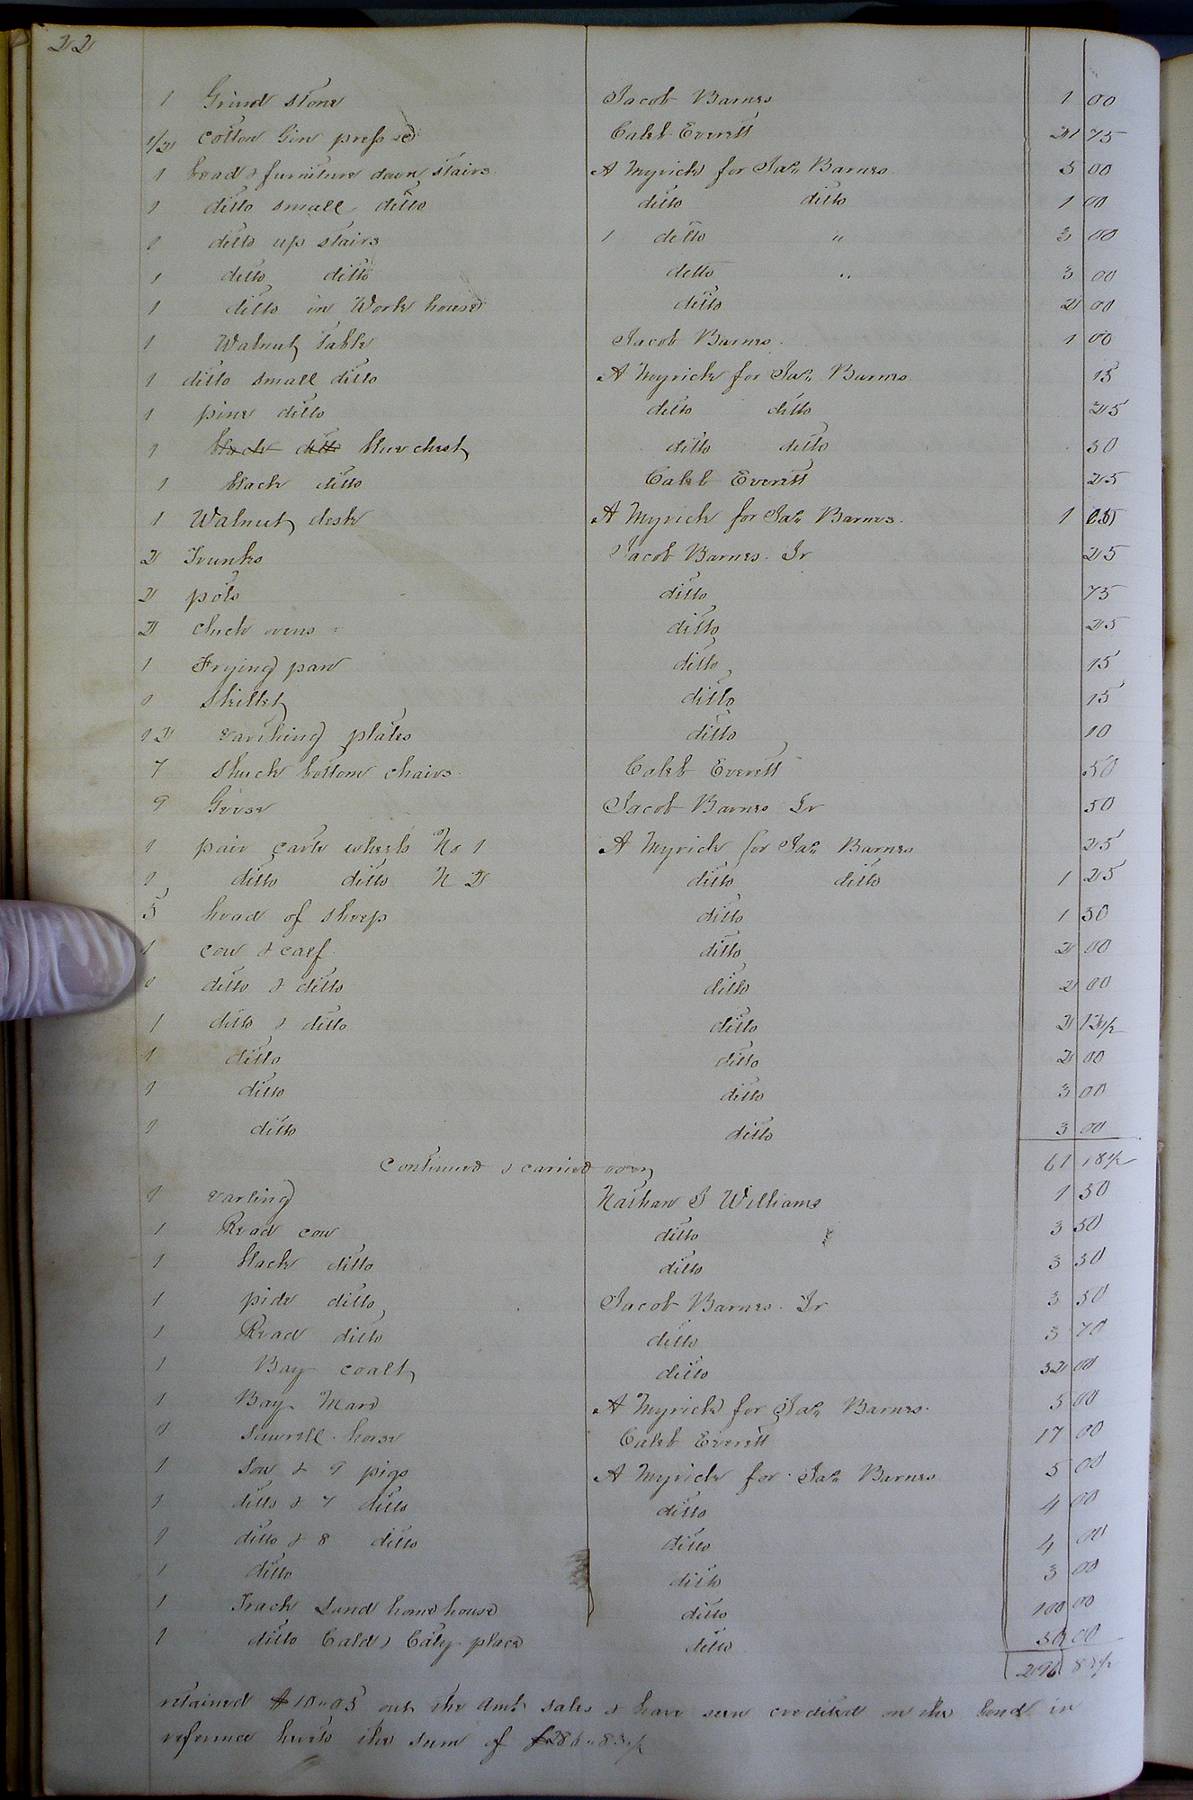 22
1 Grind stone Jacob Barnes 1 00
1/2 cotton Gin press Caleb Everett 2 75
1 bead & furniture down stairs A Myrick for Jas. Barnes 5 00
1 ditto small ditto ditto ditto 1 00
1 ditto up stairs 1 ditto " 3 00
1 ditto ditto ditto " 3 00
1 ditto in Work house ditto 2 00
1 Walnut Table Jacob Barnes 1 00
1 ditto small ditto A Myrick for Jas. Barnes 15
1 pine ditto ditto ditto 25
1 black ditto blue chest ditto ditto 50
1 black ditto Caleb Everett 25
1 Walnut desk A Myrick for Jas. Barnes 1
2 Trunks Jacob Barnes Sr 25
2 pots ditto 75
2 ovens ditto 25
1 Frying pan ditto 15
1 Skillet ditto 15
12 earthing plates ditto 10
7 Shuck bottom chairs Caleb Everett 50
9 Geese Jacob Barnes Sr 50
1 pair cart wheels No 1 A Myrick for Jas. Barnes 25
1 ditto ditto N 2 ditto ditto 1 25
5 head of sheep ditto 1 50
1 cow & calf ditto 2 00
1 ditto & ditto ditto 2 00
1 ditto & ditto ditto 2 13 1/2
1 ditto ditto 2 00
1 ditto ditto 3 00
1 ditto ditto 3 00
Continued & carried over 61 18 1/2
1 earling Nathan J Williams 1 50
1 Read cow ditto 3 50
1 black ditto ditto 3 50
1 pide ditto Jacob Barnes Sr 3 50
1 Read ditto ditto 3 70
1 Bay coalt ditto 32 00
1 Bay Mare A Myrick for Jas. Barnes 5 00
1 Sawrell horse Caleb Everett 17 00
1 Sow & 9 pigs A Myrick for Jas. Barnes 5 00
1 ditto & 7 ditto ditto 4 00
1 ditto & 8 ditto ditto 4 00
1 ditto ditto 3 00
1 Track Land home house ditto 100 00
1 ditto Cald Caty place ditto 50 00
296 88 1/2
retained $10"05 out the Amt sales & have seen credited on the bond in
reference hereto the sum of $286"83 1/2